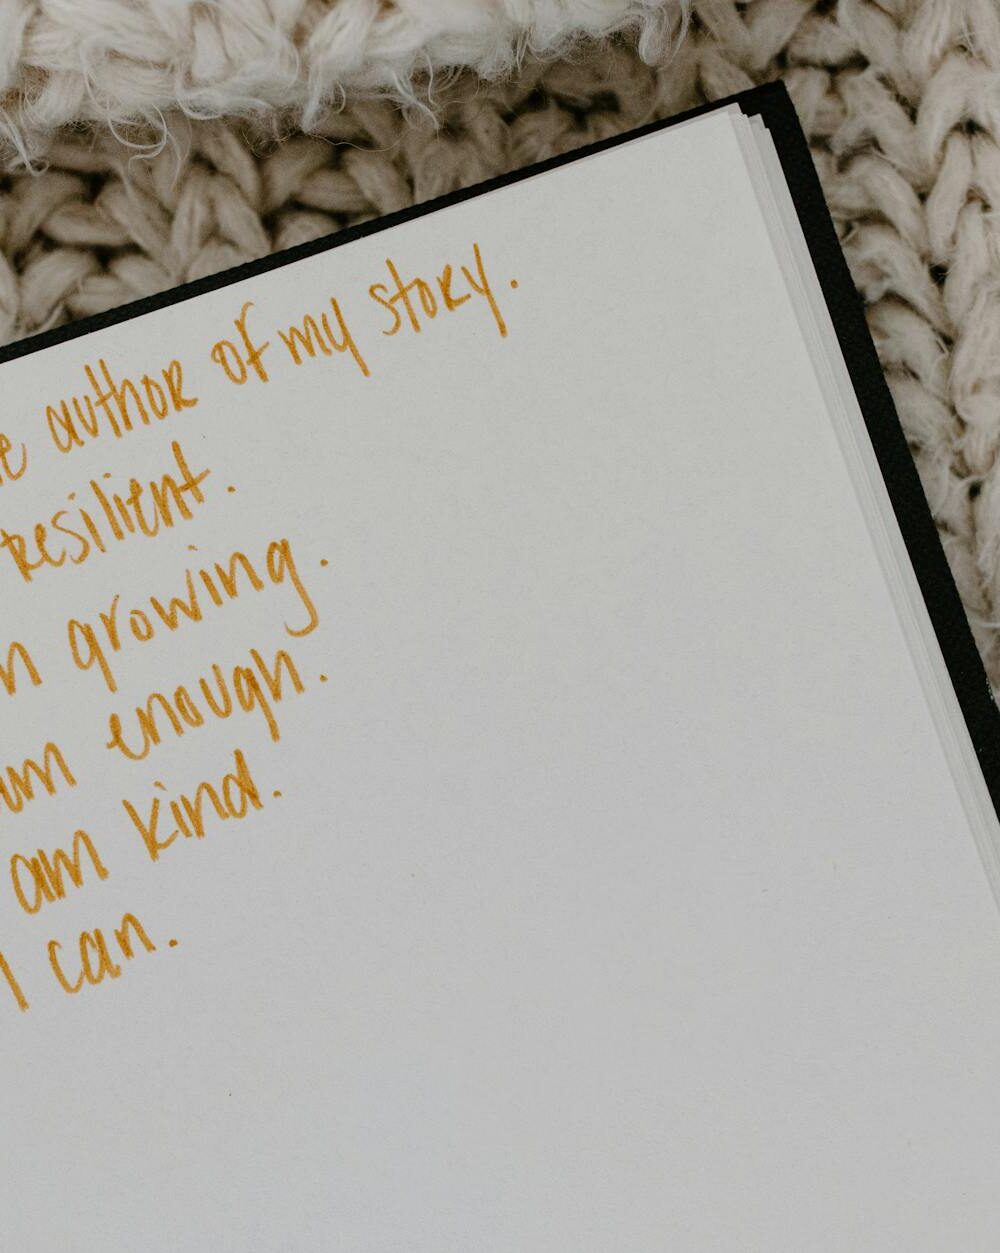 author of my story.
resilient.
growing.
am enough.
am kind.
I can.